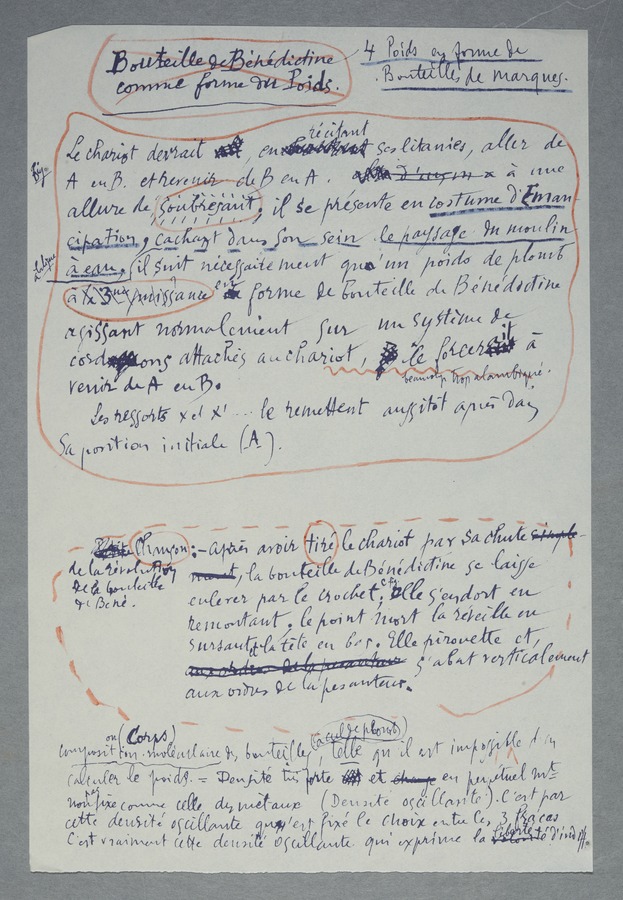 Bouteille de Bénédictine
comme forme du Poids.
4 Poids en forme de
Bouteilles de marques.
Le chariot devrait, en récitant ses litanies, aller de
A en B. et revenir de B en A. à une
allure de soubresaut; il se présente en costume d'Eman-
cipation, cachant dans son sein le paysage du moulin
à eau, (il suit nécessairement qu'un poids de plomb
à la 3me puissance en forme de bouteille de Bénédictine
agissant normalement sur un système de
cordons attachés au chariot, le forcerait à
venir de A en B.
beaucoup trop alambiqué.
Les ressorts x et x' ... le remettent aussitôt après dans
sa position initiale (A).
Chanson:
de la révolution
de la bouteille
de Béné.
– Après avoir tiré le chariot par sa chute simple-
ment, la bouteille de Bénédictine se laisse
enlever par le crochet; elle s'endort en
remontant; le point mort la réveille en
sursaut et la tête en bas. Elle pirouette et
s'abat verticalement
aux ordres de la pesanteur.
ou (Corps)
composition moléculaire des bouteilles, (à cul de plomb) telle qu'il est impossible d'en
calculer le poids. = Densité très forte et en perpétuel mt
non fixe comme celle des métaux (Densité oscillante). C'est par
cette densité oscillante qu'est fixé le choix entre les 3 fracas
C'est vraiment cette densité oscillante qui exprime la liberté d'indiff.